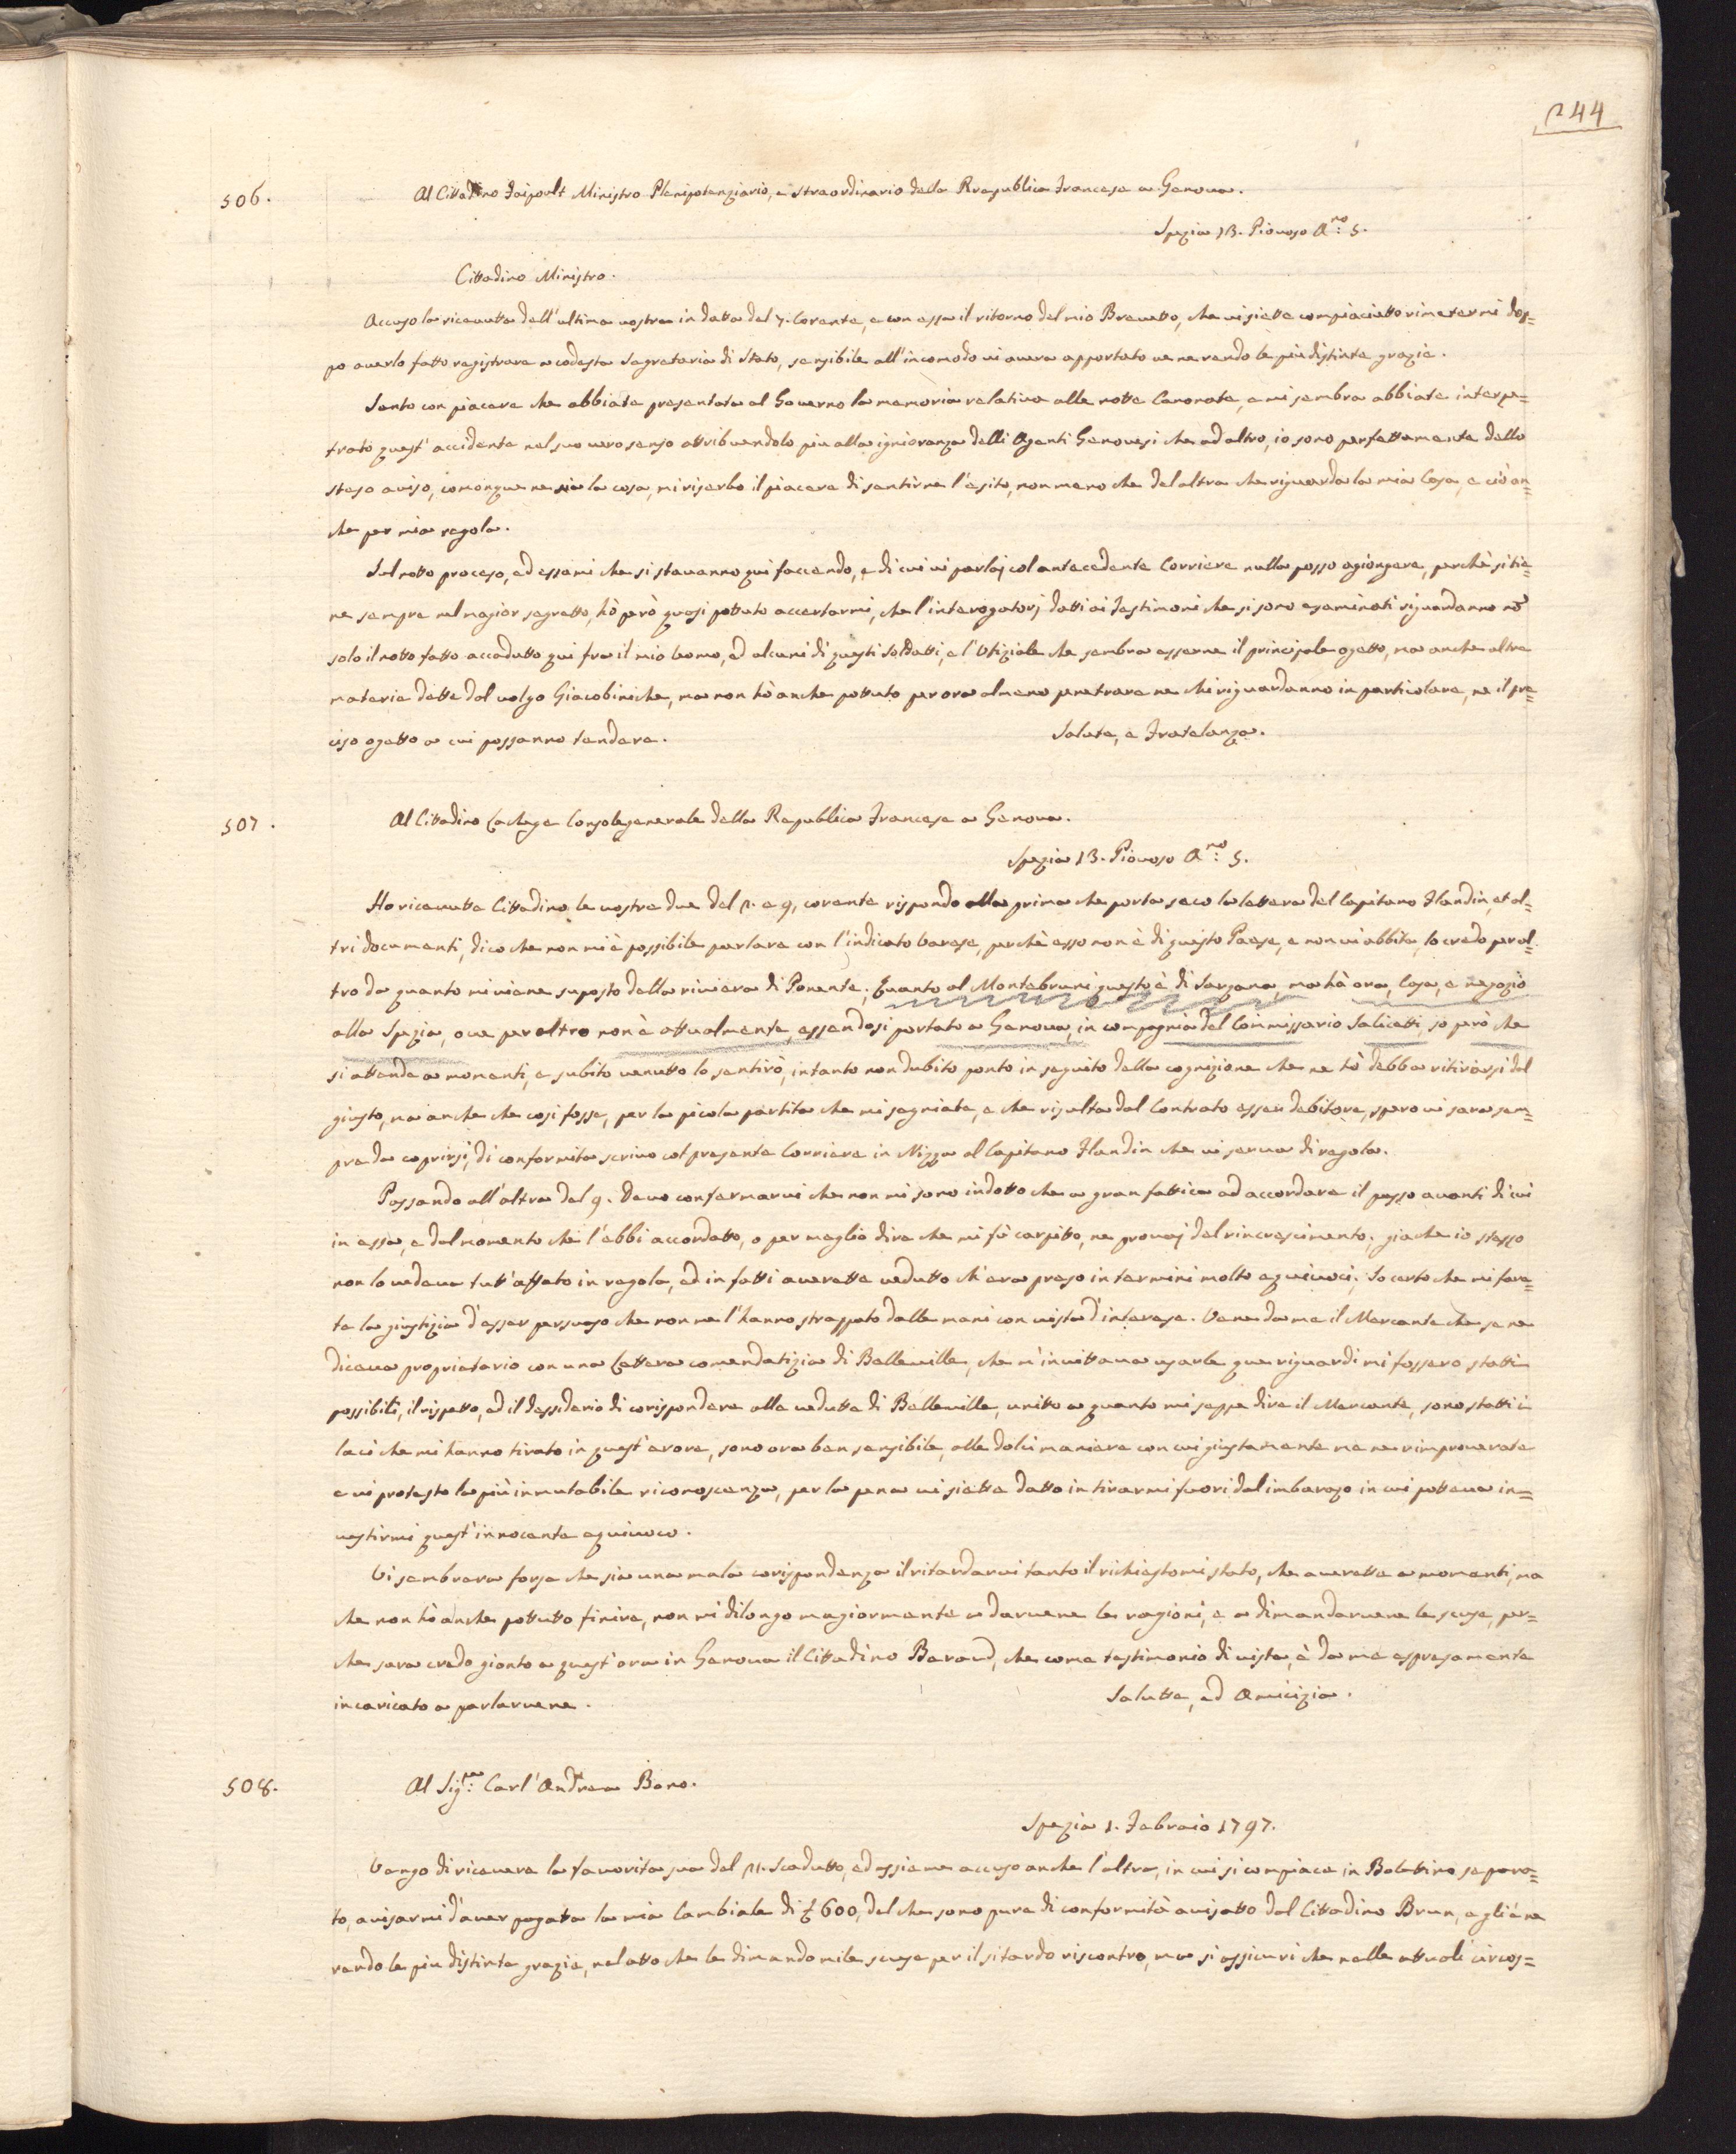 244
506.
Al Cittadino Faipoult Ministro Plenipotenziario, e straordinario della Rrepublica Francese a Genova.
Spezia 13. Piovoso A.no 5.
Cittadino Ministro.
Accuso la ricevutta dell'ultima vostra in datta del 7. Corente, e con essa il ritorno del mio Brevetto, che vi siette compiaciutto rimetermi dop=
po averlo fatto registrare a codesta Segretaria di Stato, sensibile all'incomodo vi avera apportato ve ne rendo le più distinte grazie.
Sento con piacere che abbiate presentata al Governo la memoria relativa alle notte Canonate, e mi sembra abbiate interpe=
trato quest'accidente nel suo vero senso attribuendolo piu alla ignioranza delli Agenti Genovesi che ad altro, io sono perfettamente dello
steso aviso, comonque ne sia la cosa, mi riserbo il piacere di sentirne l'esito, non meno che del altra che riguarda la mia Casa, e ciò an=
che per mia regola.
Sul notto proceso, ed essami che si stavanno qui faccendo, e di cui vi parlaj col antecedente Corriere nulla posso agiongere, perchè si tie=
ne sempre nel magior segretto, hò però quasi pottuto accertarmi, che l'interogatorj datti ai Testimoni che si sono esaminati riguardanno nò
solo il notto fatto accadutto qui fra il mio Uomo, ed alcuni di questi Soldatti, e l'Ufiziale che sembra esserne il principale ogetto, ma anche altre
materie dette dal volgo Giacobiniche, ma non hò anche pottuto per ora almeno penetrare ne chi riguardanno in particolare, ne il pre=
ciso ogetto a cui possanno tendere.
Salute, e Fratelanza.
507.
Al Cittadino La Cheze Consolegenerale della Republica Francese a Genova.
Spezia 13. Piovoso A.no 5.
Ho ricevutte Cittadino le vostre due del 2. e 9, corente rispondo alla prima che porta seco la lettera del Capitano Flandin, et al=
tri documenti, dico che non mi è possibile parlare con l'indicato Varese, perchè esso non è di questo Paese, e non vi abbita, lo credo per al=
tro da quanto mi viene suposto della riviera di Ponente; Quanto al Montebruni questo è di Sarzana, ma hà ora, Casa, e negozio
alla Spezia, ove per altro non è attualmente, essendosi portato a Genova, in compagnia del Commissario Salicetti, so però che
si attende a momenti, e subito venutto lo sentirò, intanto non dubito ponto in seguito della cognizione che ne hò debba ritirarsi dal
giusto, ma anche che così fosse, per la picola partita che mi segniate, e che risulta dal Contrato esser debitore, spero vi sara sem=
pre da coprirsi, di conformita scrivo col presente Corriere in Nizza al Capitano Flandin che vi serva di regola.
Passando all'altra del 9. Devo confermarvi che non mi sono indotto che a gran fattica ad accordare il passo avanti di cui
in essa, e dal momento che l'ebbi accordatto, o per meglio dire che mi fù carpitto, ne provaj del rincrescimento, giache io stesso
non lo vedeva tutt'affato in regola, ed in fatti averette vedutto ch'era preso in termini molto equivoci. So certo che mi fare=
te la giustizia d'esser persuaso che non me l'hanno strappato dalle mani con vista d'interese. Vene da me il Mercante che se ne
diceva proprietario con una Lettera comendatizia di Belleville, che m'invittava usarle que riguardi mi fossero statti
possibili, il rispetto, ed il dessiderio di corispondere alle vedutte di Belleville, unitto a quanto mi seppe dire il Mercante, sono statti i
laci che mi hanno tirato in quest'erore, sono ora ben sensibile, alle dolci maniere con cui giustamente me ne rimproverate
e vi protesto la più inmutabile riconoscenza, per la pena vi siette datto in tirarmi fuori dal imbarazo in cui potteva in=
vestirmi quest'innocente equivoco.
Vi sembrera forse che sia una mala corispondenza il ritardarvi tanto il richiestomi stato, che averette a momenti, ma
che non hò anche pottutto finire, non mi dilongo magiormente a darvene le ragioni, e a dimandarvene le scuse, per=
che sara credo gionto a quest'ora in Genova il Cittadino Baraud, che come testimonio di vista, è da me espresamente
incaricato a parlarvene.
Salutte, ed Amicizia.
508.
Al Sig.re Carl'Andrea Bono.
Spezia 1. Febraio 1797.
Vengo di ricevere la favorita sua del 21. Scadutto, ed assieme accuso anche l'altra, in cui si compiace in Bolettino separa=
to, avisarmi d'aver pagatta la mia Cambiale di £ 600, del che sono pure di conformità avisatto dal Cittadino Brun, e gliéne
rendo le piu distinte grazie, nel atto che le dimando mile scuse per il sì tardo riscontro, ma si assicuri che nelle attuali circos=